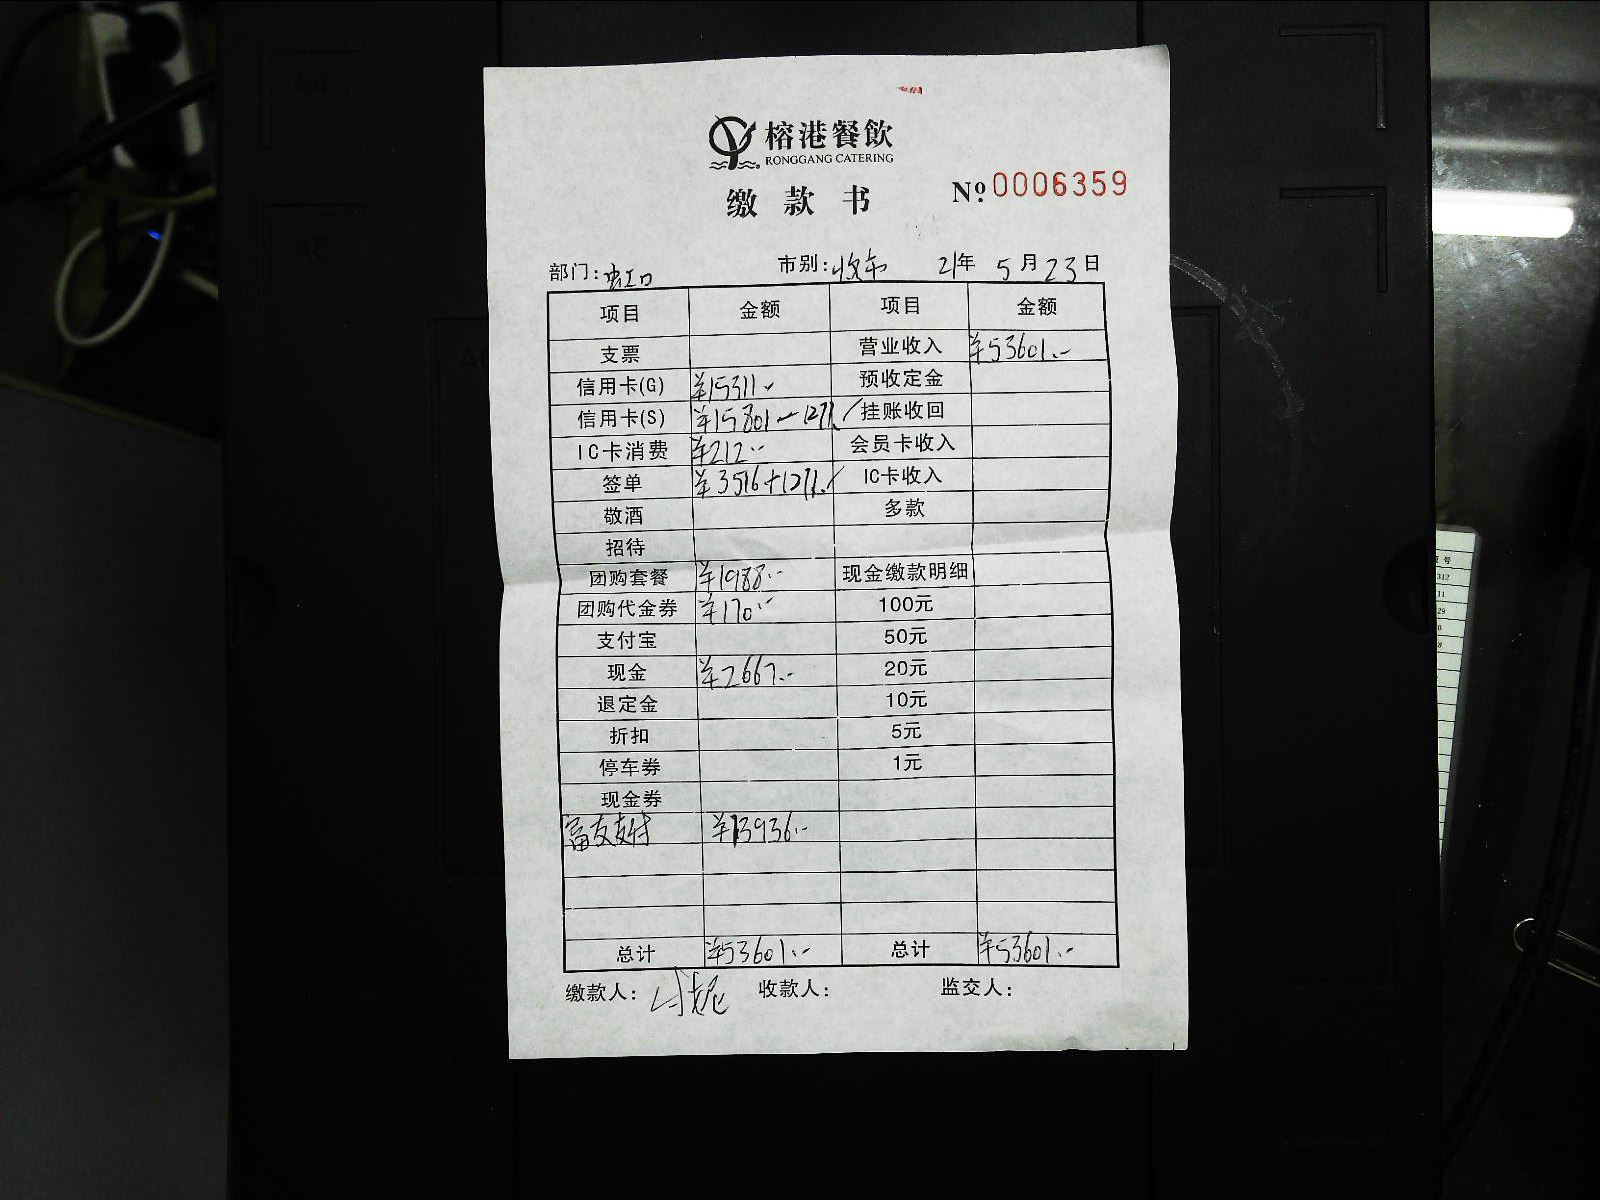 榕港餐飲
RONGGANG CATERING
缴款书 Nº 0006359
部门:虹口 市别:收市 21年 5月23日
项目 金额 项目 金额
支票 营业收入 ¥53601.-
信用卡(G) ¥15311.- 预收定金
信用卡(S) ¥15801-1271./ 挂账收回
IC卡消费 ¥212.- 会员卡收入
签单 ¥3516+1271./ IC卡收入
敬酒 多款
招待
团购套餐 ¥1988.- 现金缴款明细
团购代金券 ¥170.- 100元
支付宝 50元
现金 ¥2667.- 20元
退定金 10元
折扣 5元
停车券 1元
现金券
富友支付 ¥13936.-
总计 ¥53601.- 总计 ¥53601.-
缴款人: 收款人: 监交人: